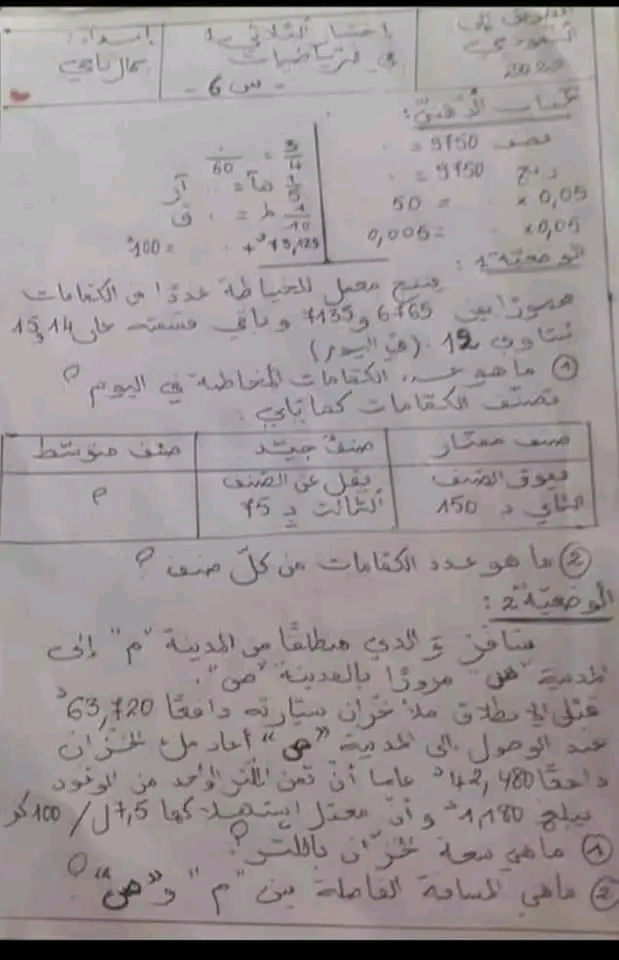 التوقيت إلى
السعودي
2023
اختبار الثلاثي 1
في الرياضيات
- س 6 -
إعداد:
كمال نابي
حساب الذهني:
نصف 9150 =
ربع 9150 =
50 = × 0,05
0,005 = × 0,05
3/4 = ./60
1/5 هآ = آر
1/10 ط = ق
100د = + 19,125د
الوضعية 1:
ينتج معمل للخياطة عددا من الكمامات
محصورا بين 6765 و 7135 وباقي قسمته على 14 و 15
تساوي 12. (في اليوم)
① ما هو عدد الكمامات المخاطة في اليوم ؟
تصنف الكمامات كما يأتي:
صنف ممتاز | صنف جيد | صنف متوسط
يفوق الصنف الثاني بـ 150 | يقل عن الصنف الثالث بـ 75 | م
② ما هو عدد الكمامات من كل صنف ؟
الوضعية 2:
سافر والدي منطلقا من المدينة "م" إلى
المدينة "س" مرورا بالمدينة "ص".
قبل الانطلاق ملأ خزان سيارته دافعا 63,720د
عند الوصول إلى المدينة "ص" أعاد ملء الخزان
دافعا 42,480د علما أن ثمن اللتر الواحد من الوقود
يبلغ 1,180د وأن معدل استهلاكها 7,5ل / 100كم
① ما هي سعة الخزان باللتر ؟
② ما هي المسافة الفاصلة بين "م" و "ص" ؟